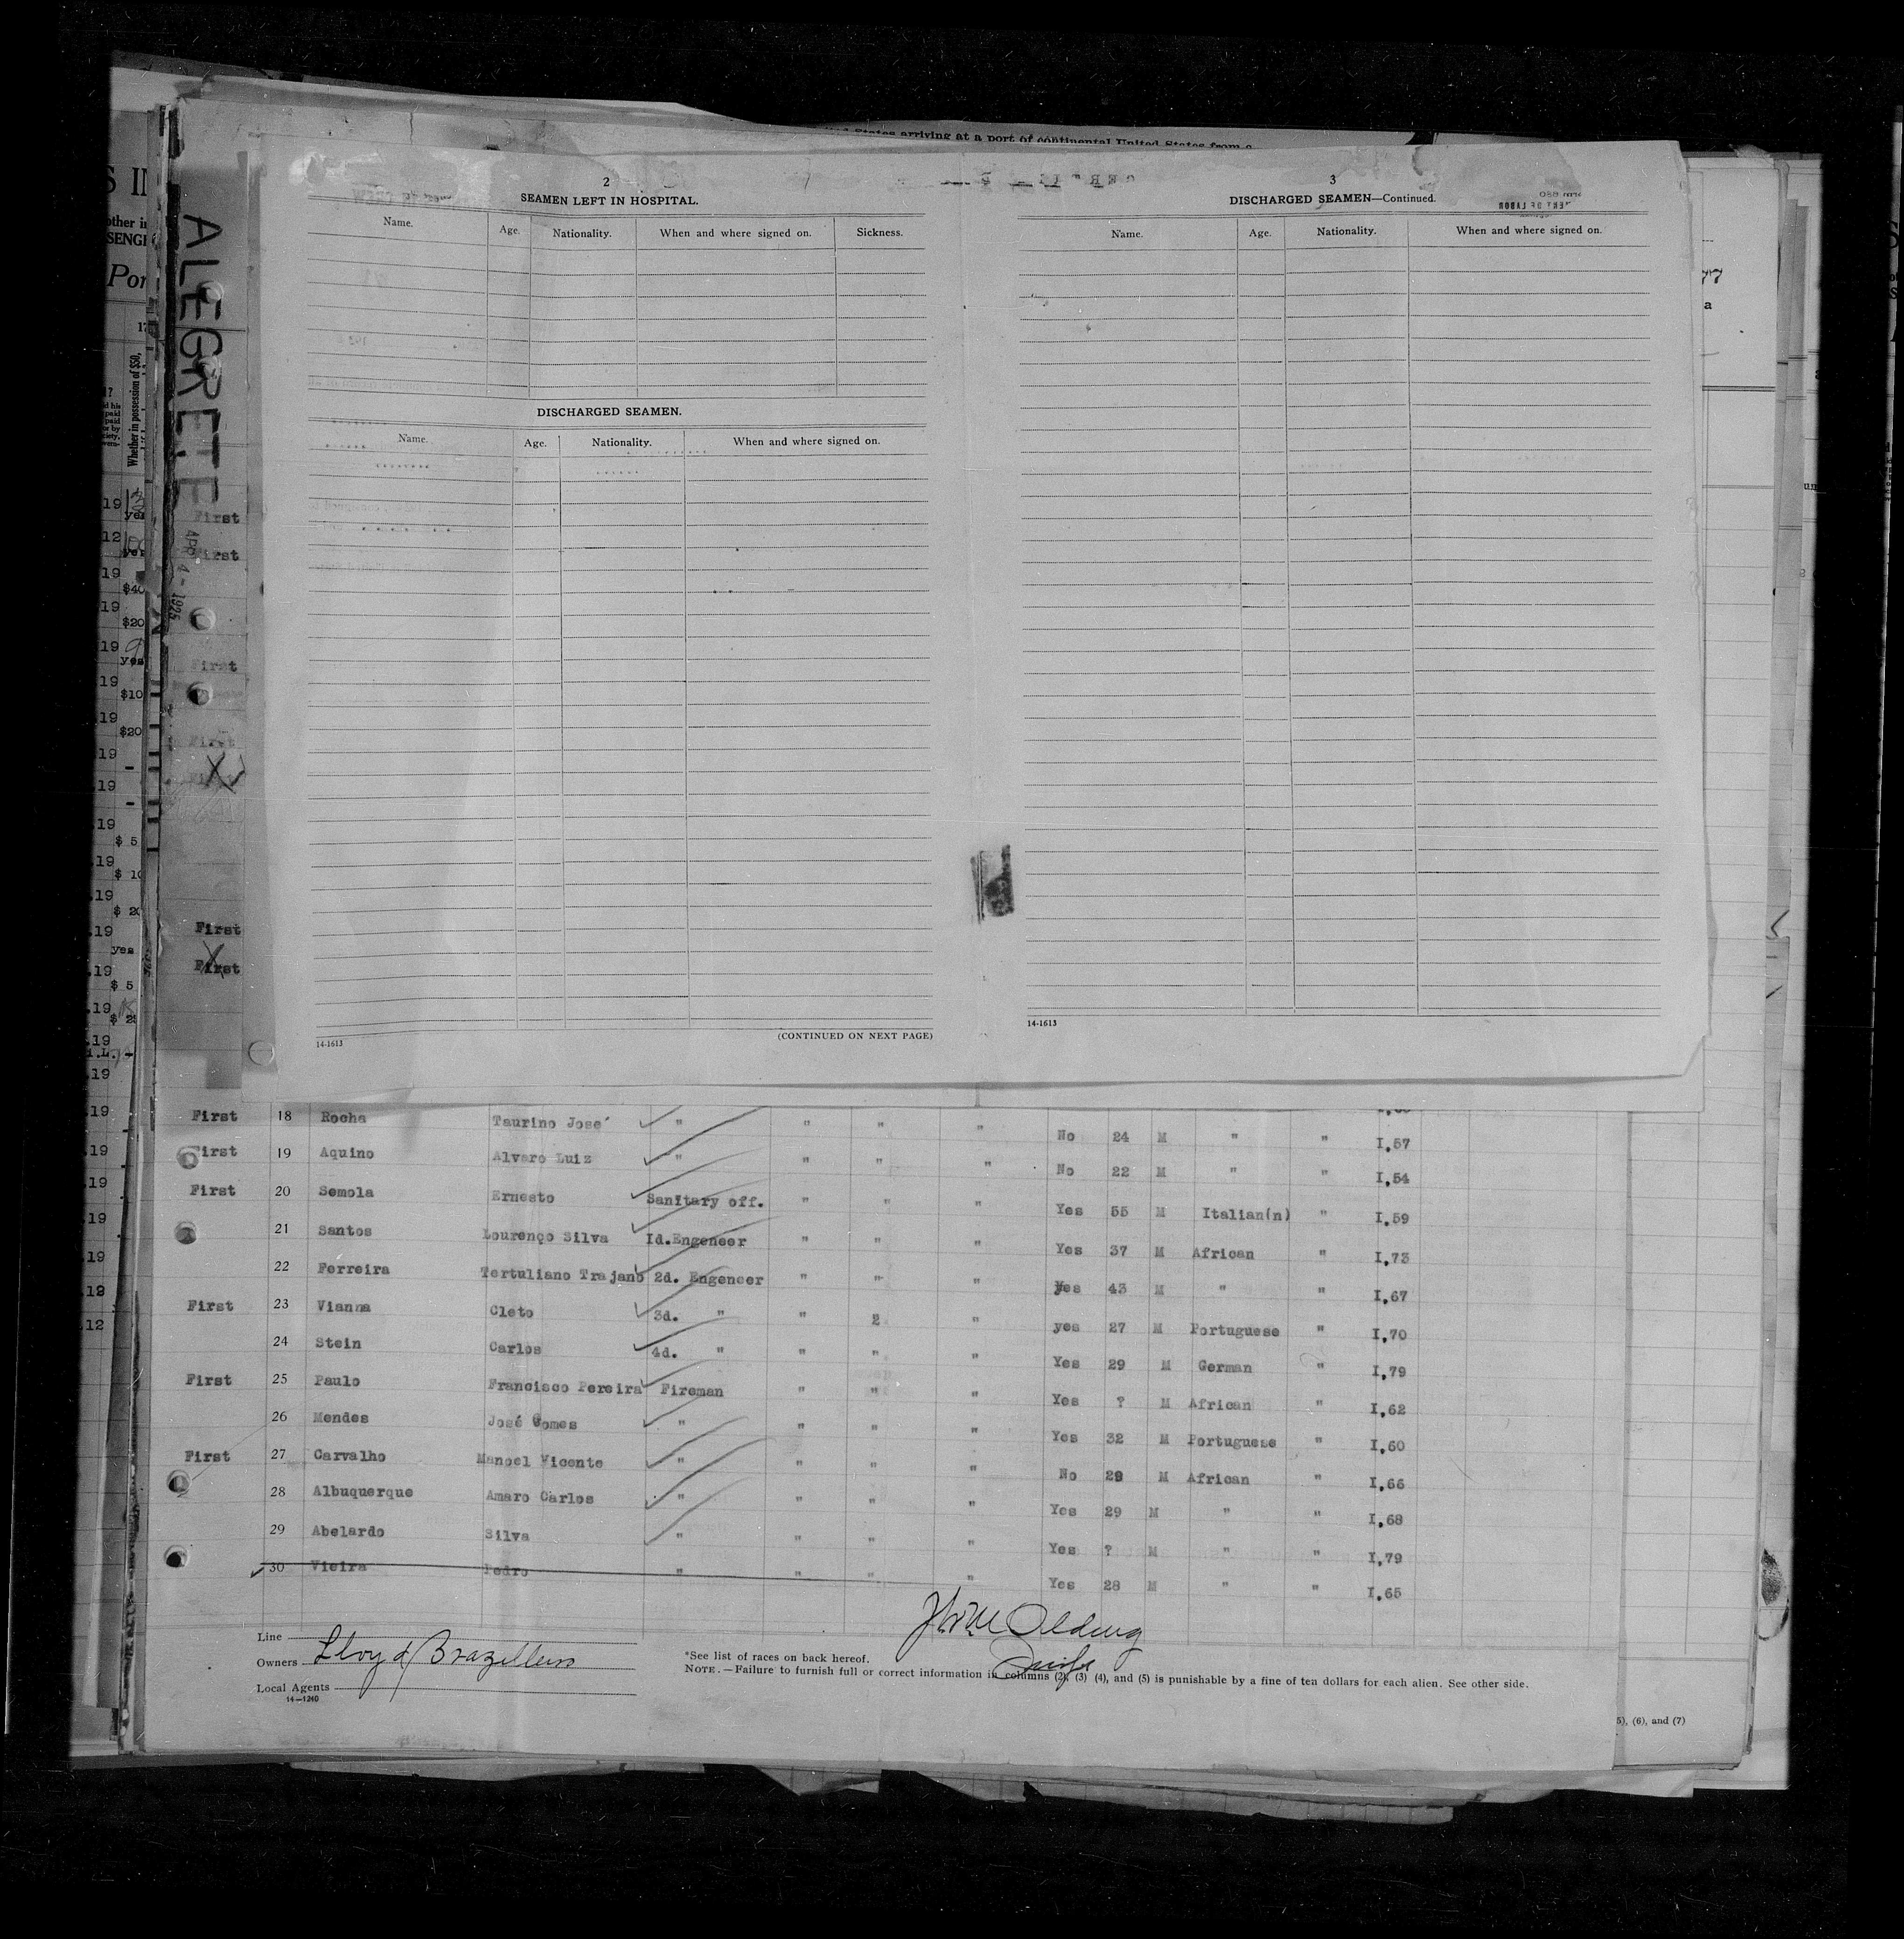 ited States arriving at a port of continental United States from a
S IN
other in
SENGE
Por
Whether in possession of $50,
ALEGRETE
APR 4 - 1925
2
SEAMEN LEFT IN HOSPITAL.
Name. Age. Nationality. When and where signed on. Sickness.
DISCHARGED SEAMEN.
Name. Age. Nationality. When and where signed on.
(CONTINUED ON NEXT PAGE)
14-1613
3
DISCHARGED SEAMEN—Continued.
Name. Age. Nationality. When and where signed on.
14-1613
77
a
19
yes
12
yes
19
$40
19
$20
19
yes
19
$10
19
$20
19
-
19
-
19
$ 5
.19
$ 10
.19
$ 20
.19
yes
.19
$ 5
.19
First
First
First
First
First
First
First 18 Rocha Taurino José " " " " No 24 M " " I,57
First 19 Aquino Alvaro Luiz " " " " No 22 M " " I,54
First 20 Semola Ernesto Sanitary off. " " " Yes 55 M Italian(n) " I,59
21 Santos Lourenço Silva Id.Engeneer " " " Yes 37 M African " I,73
22 Ferreira Tertuliano Trajano 2d. Engeneer " " " Yes 43 M " " I,67
First 23 Vianna Cleto 3d. " " 2 " yes 27 M Portuguese " I,70
24 Stein Carlos 4d. " " " " Yes 29 M German " I,79
First 25 Paulo Francisco Pereira Fireman " " " Yes ? M African " I,62
26 Mendes José Gomes " " " " Yes 32 M Portuguese " I,60
First 27 Carvalho Manoel Vicente " " " " No 28 M African " I,66
28 Albuquerque Amaro Carlos " " " " Yes 29 M " " I,68
29 Abelardo Silva " " " " Yes ? M " " I,79
30 Vieira Pedro " " " " Yes 28 M " " I,65
Line
Owners Lloyd Brazileiro
Local Agents
14—1240
*See list of races on back hereof.
NOTE.—Failure to furnish full or correct information in columns (2), (3) (4), and (5) is punishable by a fine of ten dollars for each alien. See other side.
5), (6), and (7)